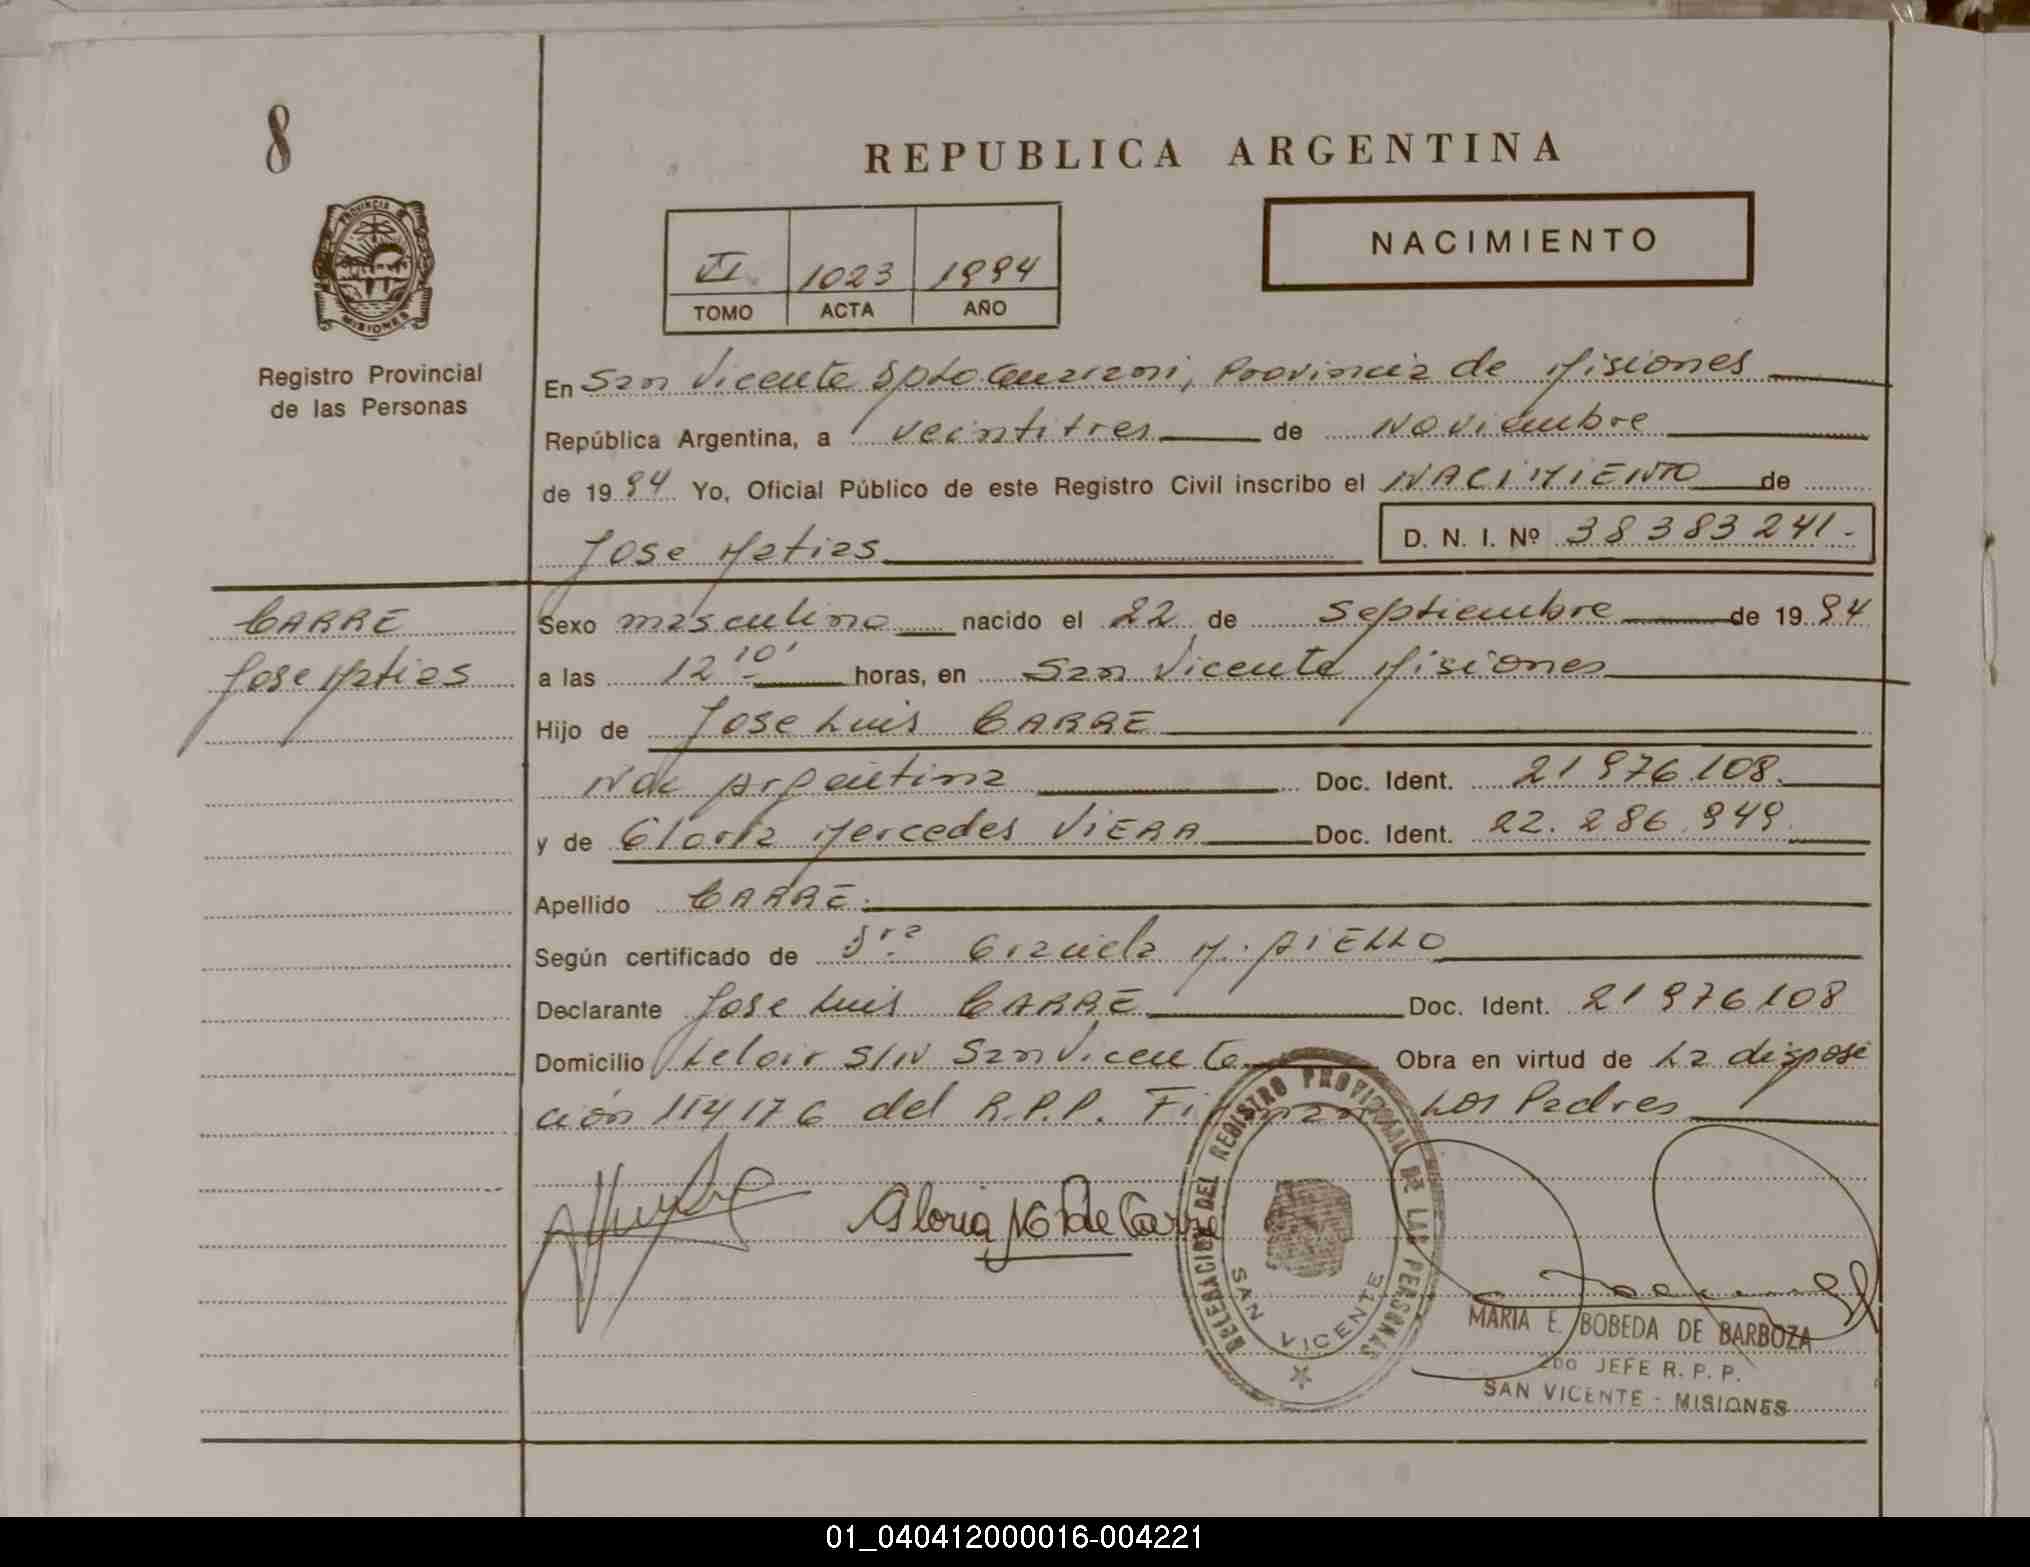 8
REPUBLICA ARGENTINA
NACIMIENTO
VI 1023 1994
TOMO ACTA AÑO
PROVINCIA DE
MISIONES
Registro Provincial
de las Personas
En San Vicente Dpto Guarani, Provincia de Misiones
República Argentina, a veintitres de Noviembre
de 1994 Yo, Oficial Público de este Registro Civil inscribo el NACIMIENTO de
Jose Matias D. N. I. Nº 38383241.-
CARRE
Jose Matias
Sexo masculino nacido el 22 de Septiembre de 1994
a las 12 10' horas, en San Vicente Misiones
Hijo de Jose Luis CARRE
Nac Argentina Doc. Ident. 21976.108.
y de Gloria Mercedes VIERA Doc. Ident. 22.286.949
Apellido CARRE.
Según certificado de Sra Graciela M. AIELLO
Declarante Jose Luis CARRE Doc. Ident. 21976108
Domicilio Leloir S/N San Vicente Obra en virtud de La disposi
ción 154176 del R.P.P. Firman Los Padres
Gloria de Carre
DELEGACION DEL REGISTRO PROVINCIAL DE LAS PERSONAS
SAN VICENTE
MARIA E. BOBEDA DE BARBOZA
2DO JEFE R. P. P.
SAN VICENTE - MISIONES
01_040412000016-004221